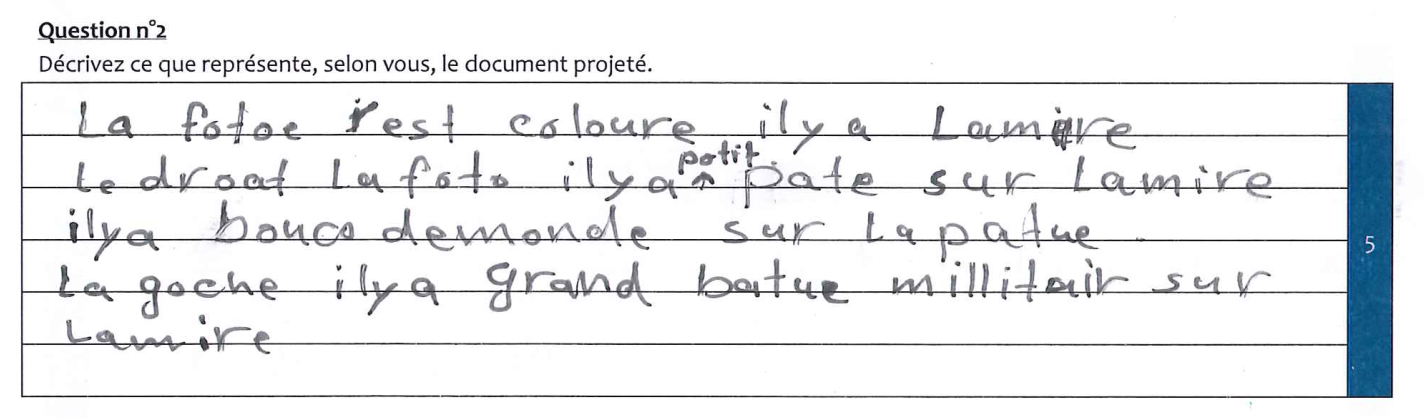 Question n°2
Décrivez ce que représente, selon vous, le document projeté.
La fotoe rest coloure ilya Lamire
Le droat La foto ilya petit pate sur Lamire
ilya bouco demonde sur Lapatue
5
La goche ilya grand batue millitair sur
Lamire